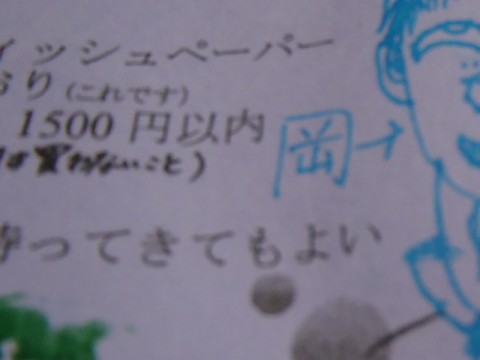 ィッシュペーパー
おり(これです)
1500円以内
は買わないこと)
岡→
待ってきてもよい